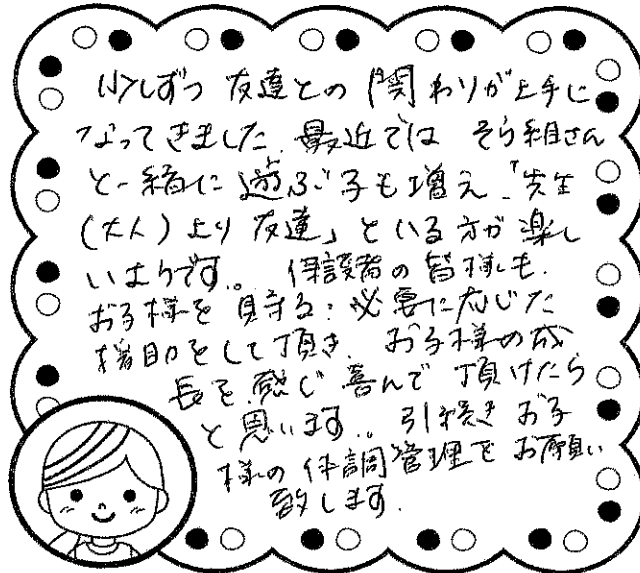 少しずつ 友達との 関わりが上手に
なってきました。最近では そら組さん
と一緒に遊ぶ子も増え、「先生
(大人)より 友達」といる方が楽し
いようです。 保護者の皆様も、
お子様を 見守る:必要に応じた
援助をして頂き、 お子様の成
長を 感じ 喜んで 頂けたら
と思います。 引き続き お子
様の 体調管理をお願い
致します。